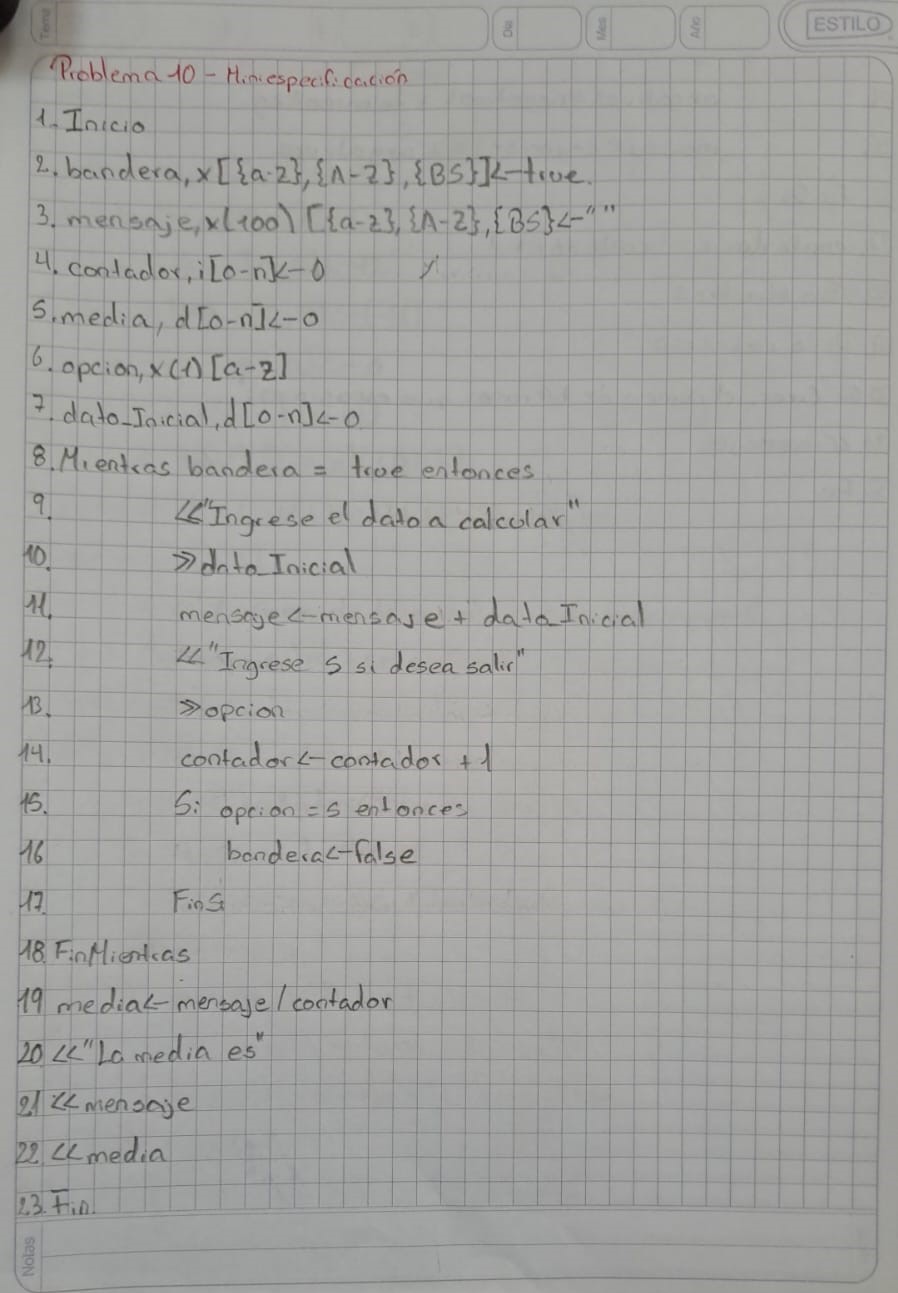 Tema
Dia
Mes
Año
ESTILO
Problema 10 - Miniespecificación
1. Inicio
2. bandera, x[{a-z},{A-Z},{BS}]<-true.
3. mensaje, x(100) [{a-z},{A-Z},{BS}<-" "
4. contador, i[0-n]<-0
5. media, d[0-n]<-0
6. opcion, x(1) [a-z]
7. dato_Inicial, d[0-n]<-0
8. Mientras bandera = true entonces
9. <<"Ingrese el dato a calcular"
10. >>dato_Inicial
11. mensaje<-mensaje + dato_Inicial
12. <<"Ingrese S si desea salir"
13. >>opcion
14. contador<-contador + 1
15. Si opcion = s entonces
16 bandera<-false
17. FinSi
18. FinMientras
19 media<-mensaje/contador
20 <<"La media es"
21 <<mensaje
22. <<media
23. Fin.
Notas